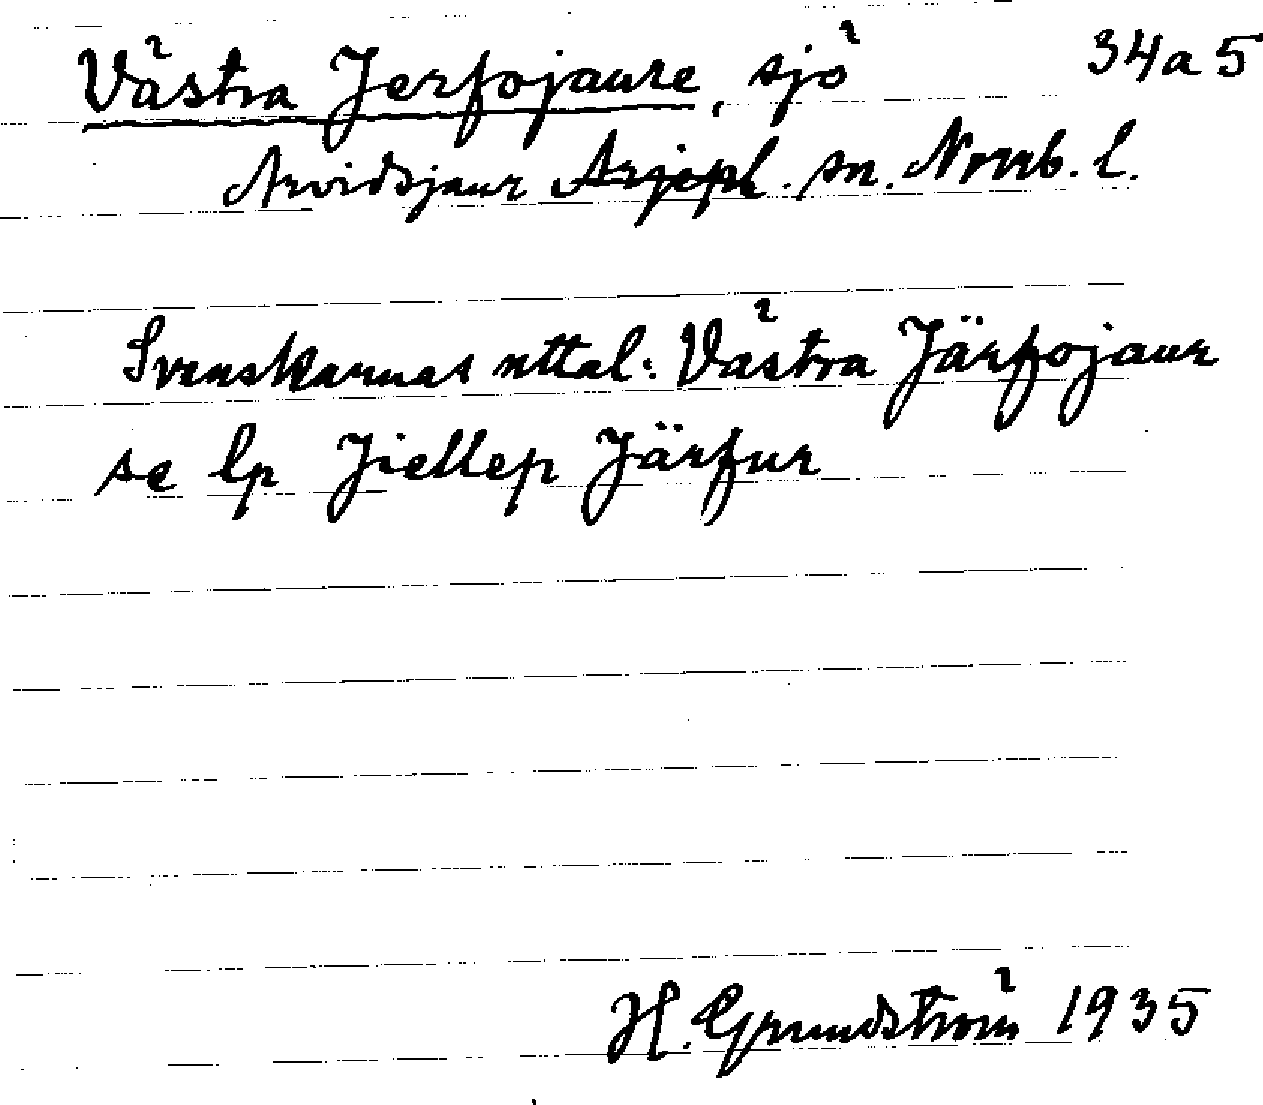 Västra Jerfojaure, sjö 34a5
Arvidsjaur Arjepl. sn. Norrb. l.
Svenskarnas uttal: Västra Järfojaur
se lp Jiellep Järfur
H. Grundström 1935